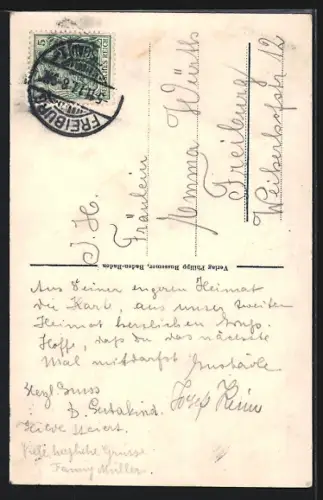 5
DEUTSCHES REICH
FREIBURG
I. H.
Fräulein
Emma Würth
Freiburg
Weiherhofstr 12
Verlag Philipp Bussemer, Baden-Baden.
Aus Deiner engeren Heimat
die Karte, aus unser zweiten
Heimat herzlichen Gruß.
Hoffe, daß du das nächste
Mal mitdarfst
Herzl Gruss Josef
Hilde
Viele herzliche Grüsse
Fanny Müller.